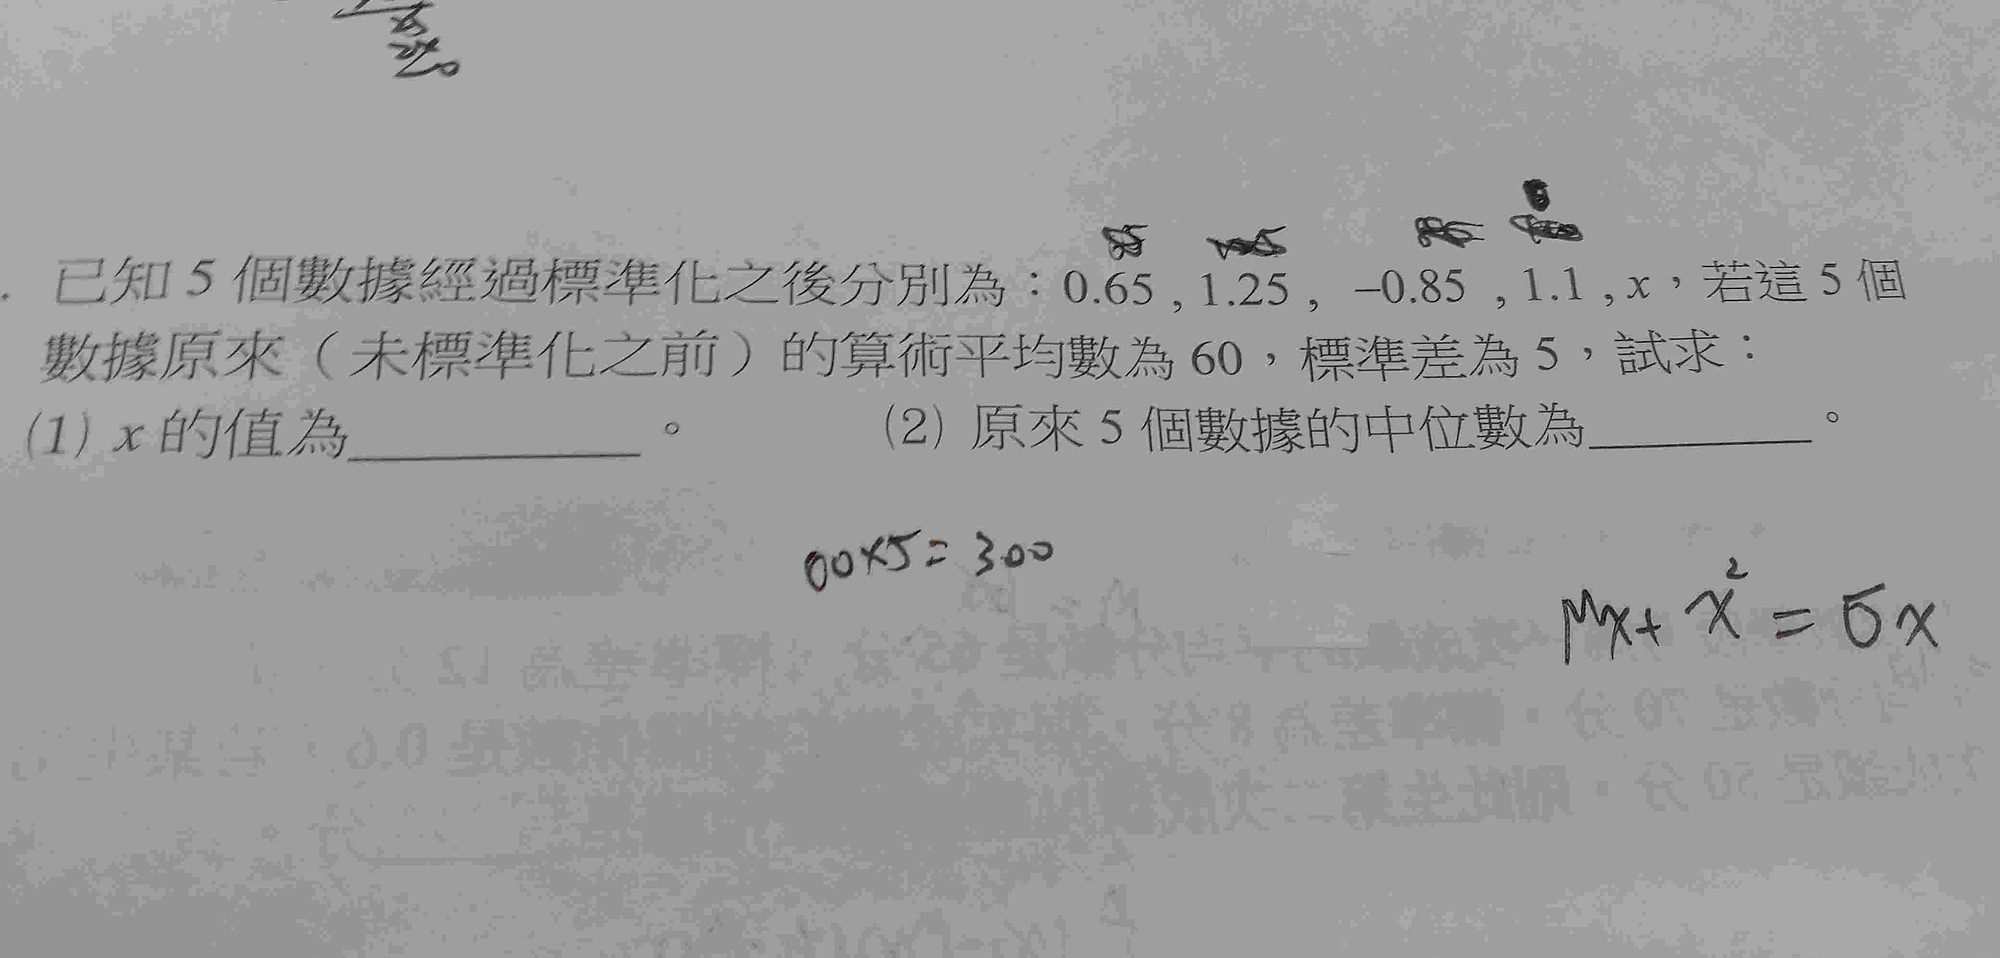 已知 5 個數據經過標準化之後分別為：0.65 , 1.25 , −0.85 , 1.1 , x，若這 5 個
數據原來（未標準化之前）的算術平均數為 60，標準差為 5，試求：
(1) x 的值為＿＿＿＿＿。 (2) 原來 5 個數據的中位數為＿＿＿＿。
60×5=300
μx+x²=σx